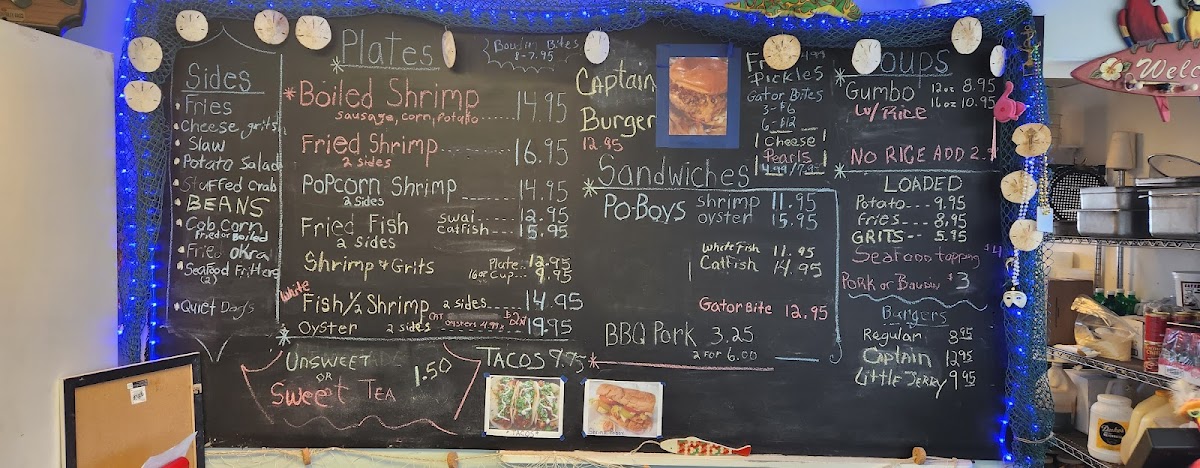 Sides
Fries
Cheese grits
Slaw
Potato Salad
Stuffed Crab
BEANS
Cob corn
Fried or Boiled
Fried Okra
Seafood Fritters
(2)
Quiet Dogs
Plates
Boudin Bites
8-7.95
Boiled Shrimp 14.95
sausage, corn, potato
Fried Shrimp 16.95
2 sides
PoPcorn Shrimp 14.95
2 Sides
Fried Fish swai 12.95
2 sides catfish 15.95
Shrimp & Grits Plate 12.95
16oz Cup 9.95
White
Fish/½ Shrimp 2 sides 14.95
Oyster 2 sides 19.95
Unsweet
or
Sweet Tea
1.50
TACOS 9.75
TACOS
Captain
Burger
12.95
Pickles
Gator Bites
3-$6
6-$12
Cheese
Pearls
Sandwiches
Po-Boys shrimp 11.95
oyster 15.95
White Fish 11.95
Catfish 14.95
Gator Bite 12.95
BBQ Pork 3.25
2 FOR 6.00
Gumbo 12oz 8.95
16oz 10.95
W/ RICE
NO RICE ADD
LOADED
Potato 9.95
fries 8.95
GRITS 5.95
Seafood topping $4
Pork or Boudin $3
Burgers
Regular 8.95
Captain 12.95
Little Jerry 9.95
Duke's